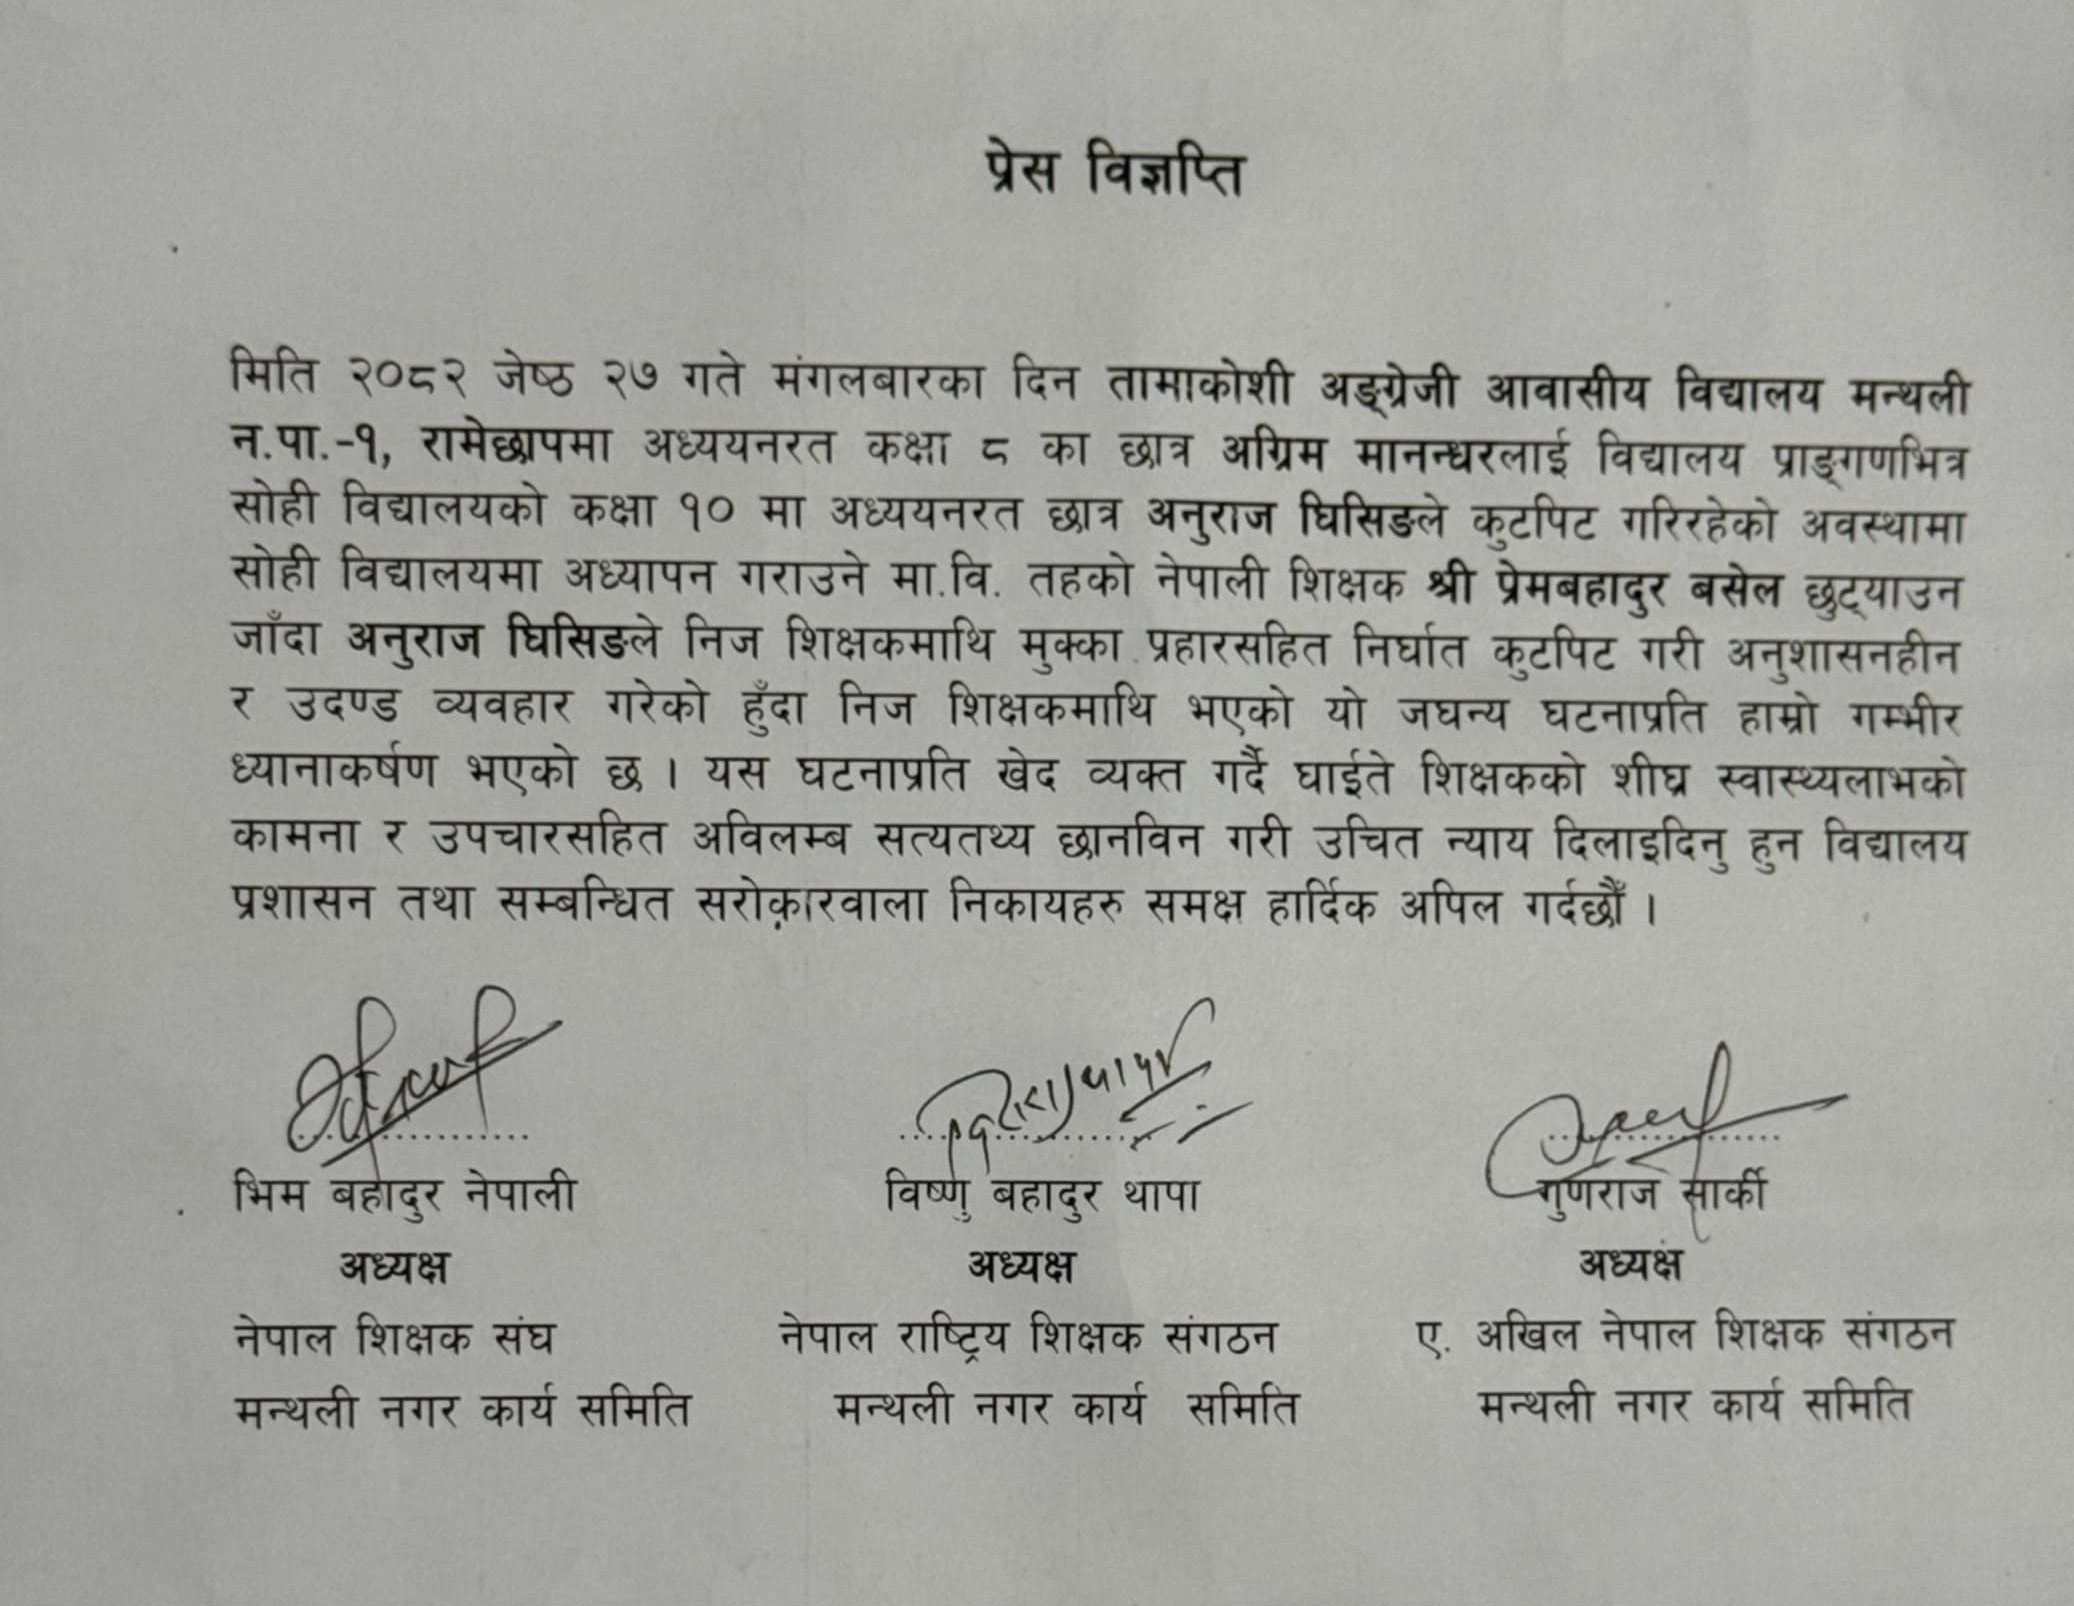 प्रेस विज्ञप्ति
मिति २०८२ जेष्ठ २७ गते मंगलबारका दिन तामाकोशी अङ्ग्रेजी आवासीय विद्यालय मन्थली
न.पा.-१, रामेछापमा अध्ययनरत कक्षा ८ का छात्र अग्रिम मानन्धरलाई विद्यालय प्राङ्गणभित्र
सोही विद्यालयको कक्षा १० मा अध्ययनरत छात्र अनुराज घिसिङले कुटपिट गरिरहेको अवस्थामा
सोही विद्यालयमा अध्यापन गराउने मा.वि. तहको नेपाली शिक्षक श्री प्रेमबहादुर बसेल छुट्याउन
जाँदा अनुराज घिसिङले निज शिक्षकमाथि मुक्का प्रहारसहित निर्घात कुटपिट गरी अनुशासनहीन
र उदण्ड व्यवहार गरेको हुँदा निज शिक्षकमाथि भएको यो जघन्य घटनाप्रति हाम्रो गम्भीर
ध्यानाकर्षण भएको छ । यस घटनाप्रति खेद व्यक्त गर्दै घाईते शिक्षकको शीघ्र स्वास्थ्यलाभको
कामना र उपचारसहित अविलम्ब सत्यतथ्य छानविन गरी उचित न्याय दिलाइदिनु हुन विद्यालय
प्रशासन तथा सम्बन्धित सरोकारवाला निकायहरु समक्ष हार्दिक अपिल गर्दछौं ।
भिम बहादुर नेपाली विष्णु बहादुर थापा गुणराज सार्की
अध्यक्ष अध्यक्ष अध्यक्ष
नेपाल शिक्षक संघ नेपाल राष्ट्रिय शिक्षक संगठन ए. अखिल नेपाल शिक्षक संगठन
मन्थली नगर कार्य समिति मन्थली नगर कार्य समिति मन्थली नगर कार्य समिति